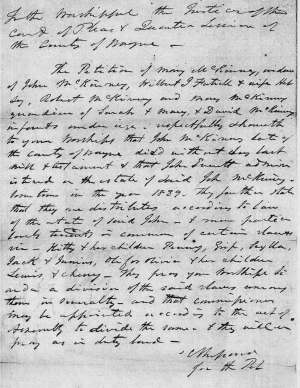 To the Worshipful the Justices of the
Court of Pleas & Quarter Session of
the County of Wayne –
The Petition of Mary McKinney, widow
of John McKinney, Hilbert & wife
Robert McKinney and Mary McKinney
guardian of Sarah & Mary & David McKinney
infants under age – respectfully sheweth
to your Worships that John McKinney late of
the County of Wayne died without any last
will & testament & that John Everitt admin
istered on the estate of said John McKinney
sometime in the year 1839. They further state
that they are distributees according to law
of the estate of said John & now partic
ularly tenants in common of certain slaves
viz – Kitty & her children
Jack & Junius, Old Olivia & her children
Lewis & Cherry – They pray your Worships to
order a division of the said slaves among
them in severalty – and that commissioners
may be appointed according to the act of
Assembly to divide the same & they will ever
pray as in duty bound –
for the Pet